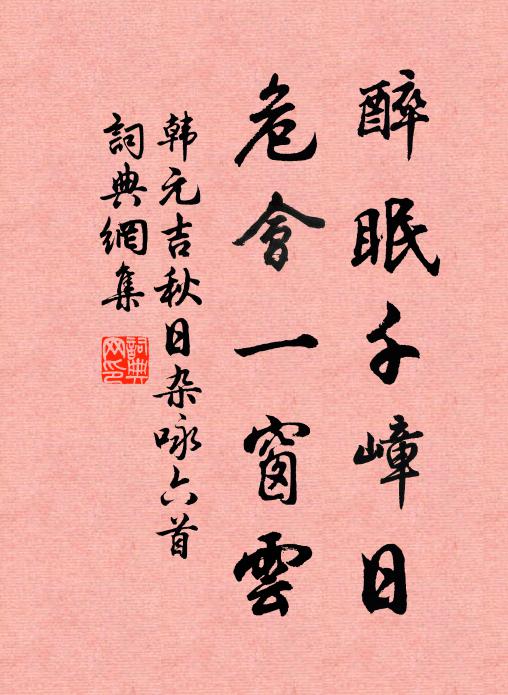 醉眠千嶂日
危會一窗雲
韩元吉秋日杂咏六首
詞典網集
詞典网印